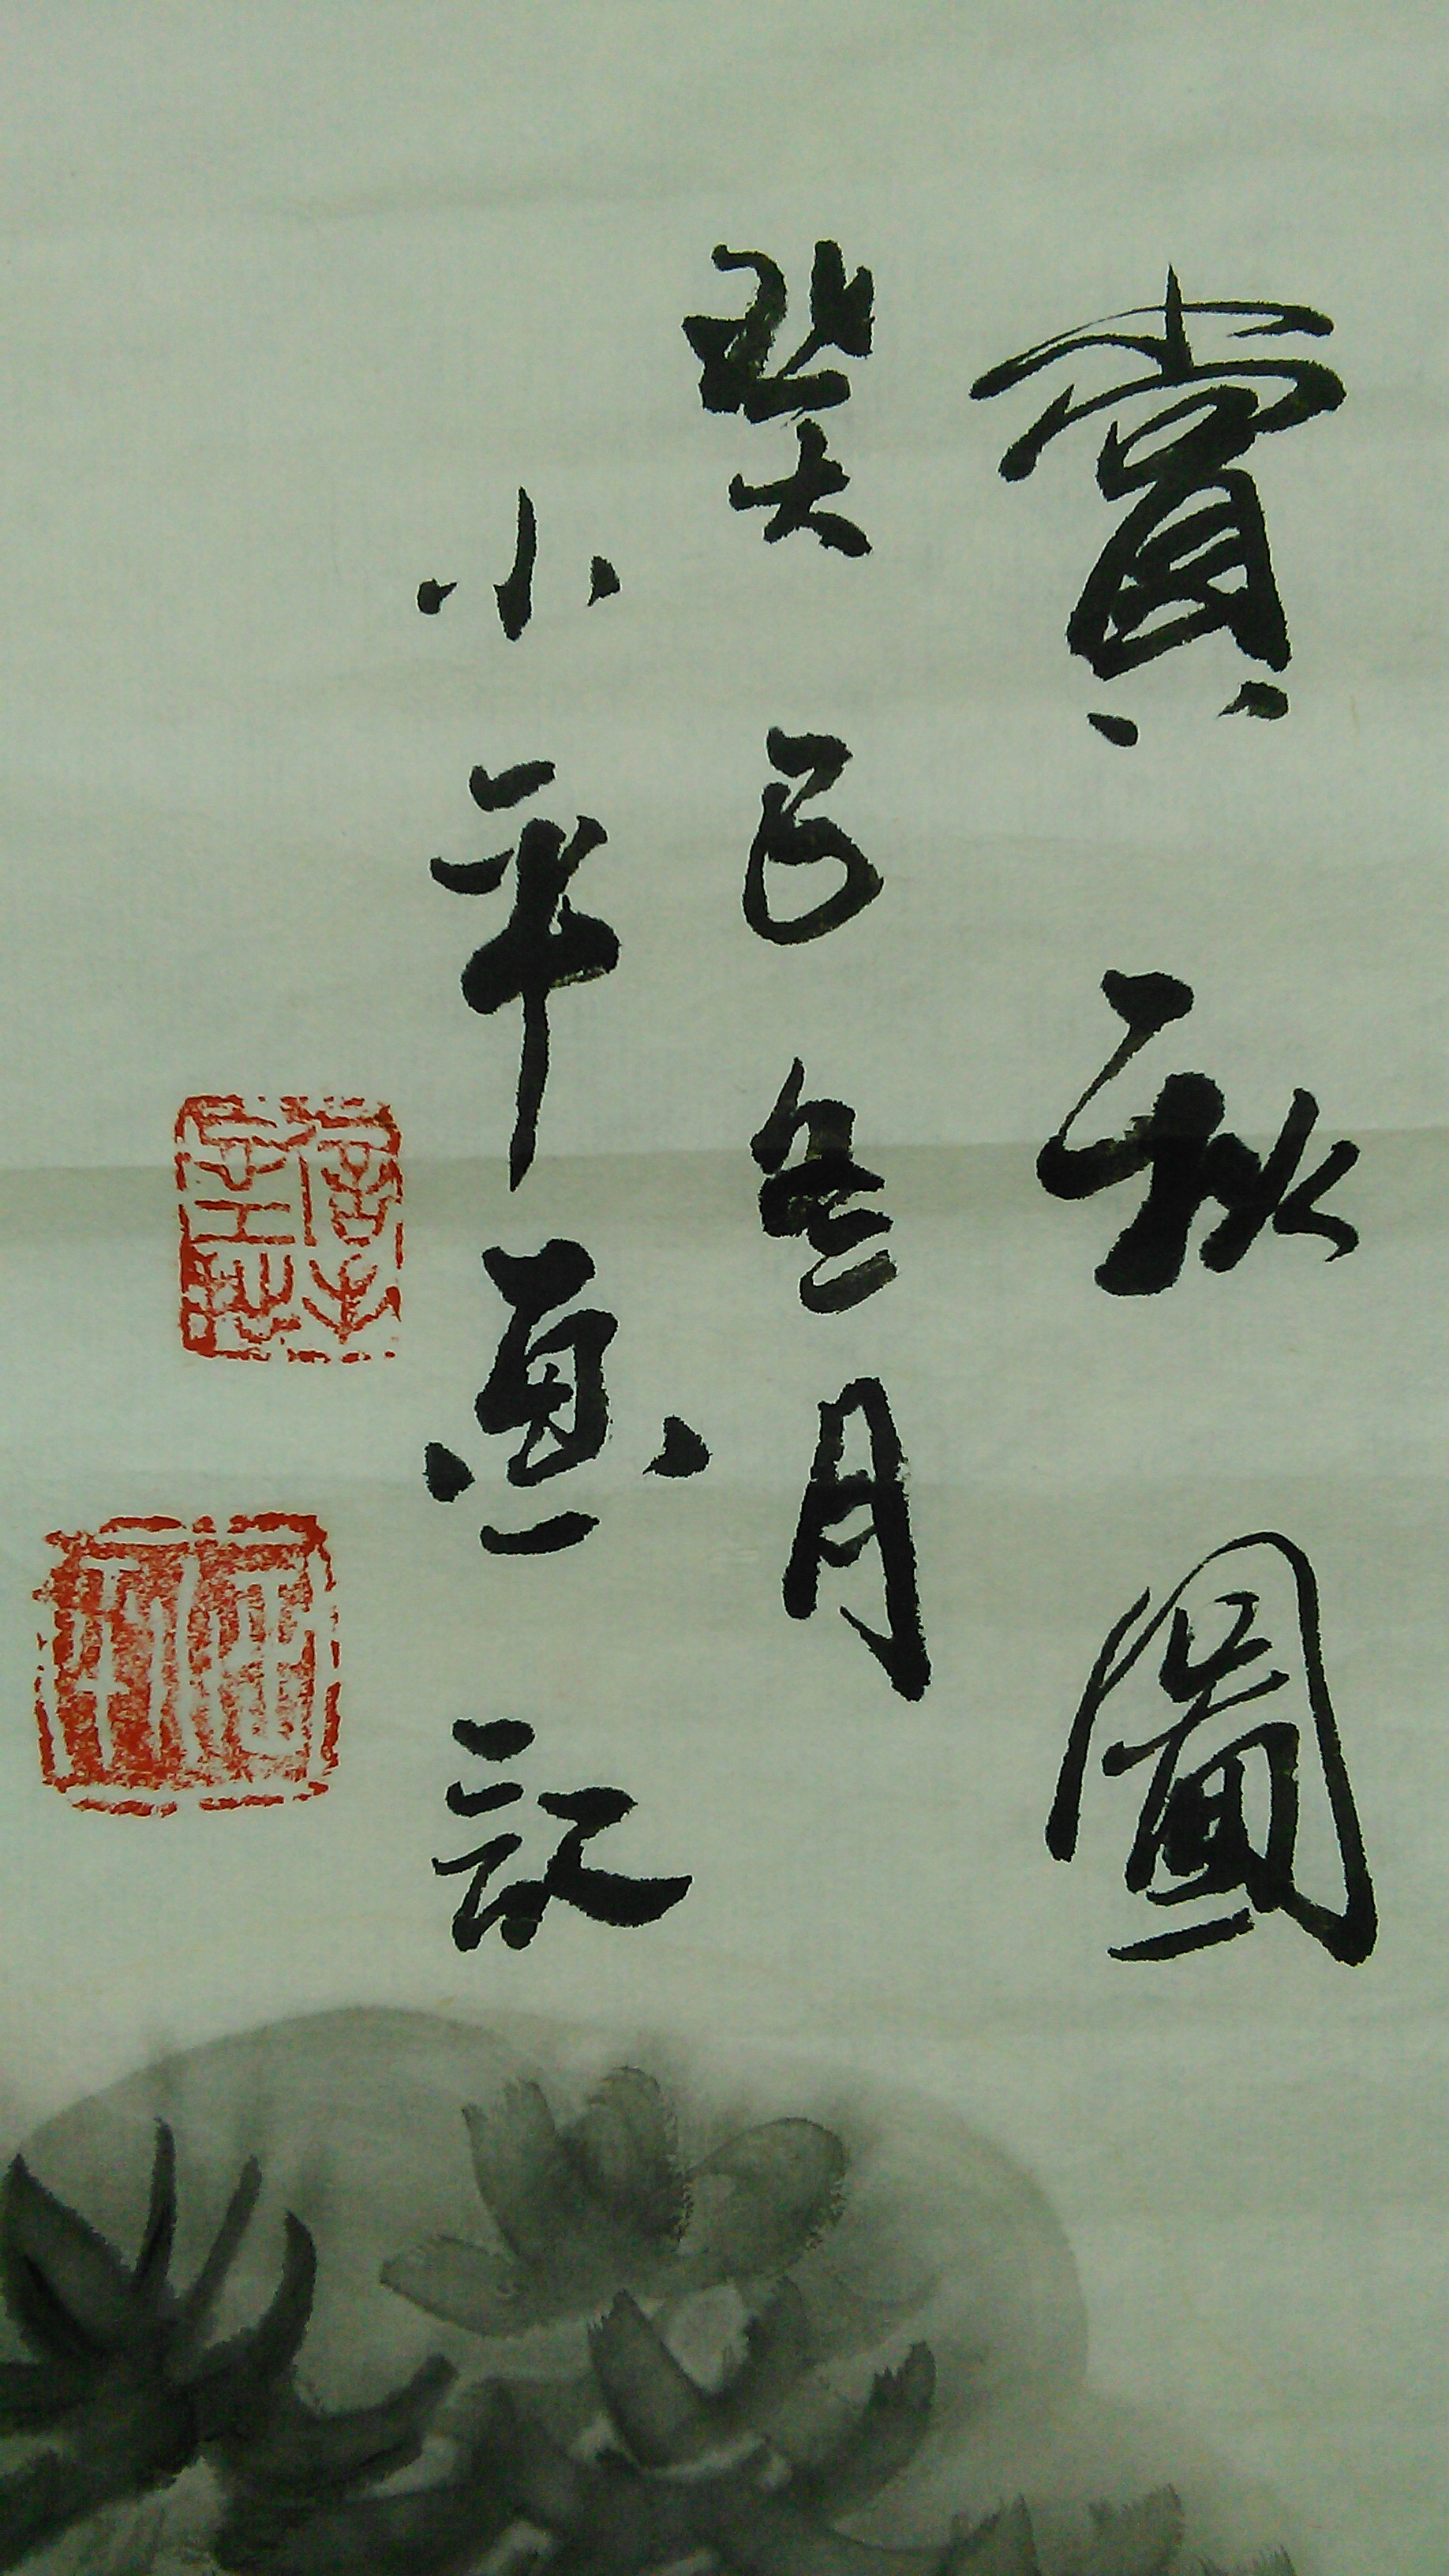 賞秋圖
癸巳冬月
小平画記